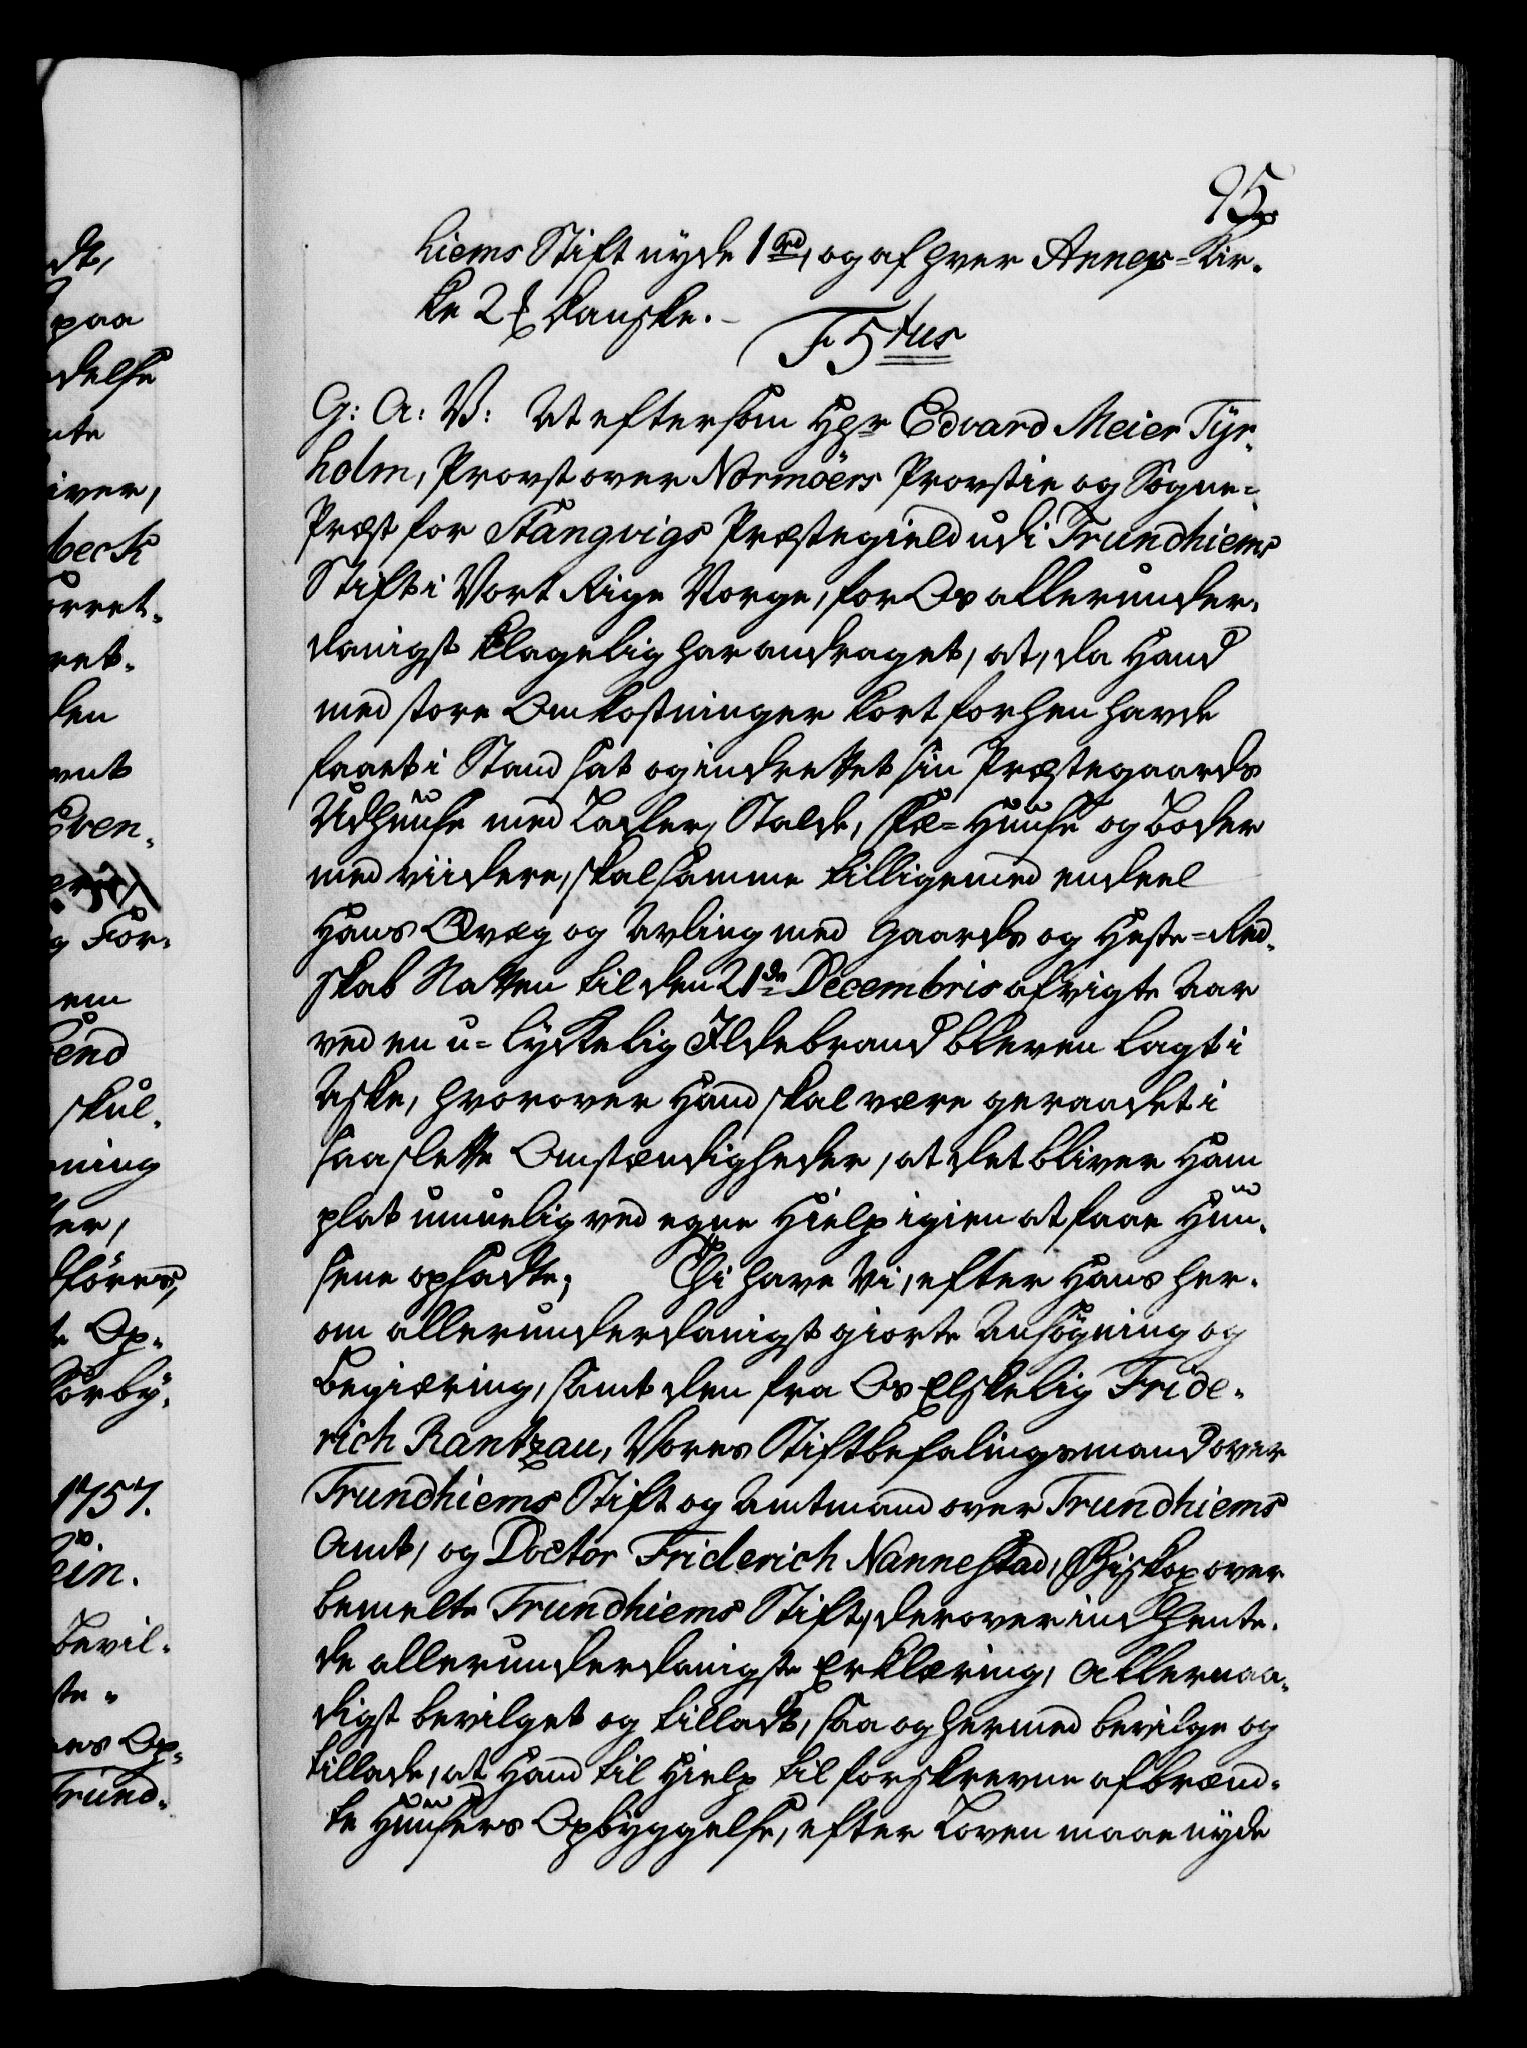 95.
hiems Stift nyde 1 rd, og af hver Annex-Kir-
ke 2 ẞ danske.
F 5tus
G: A: V: At eftersom Hr Edvard Meier Tyr-
holm, Provst over Normöers Provstie og Sogne-
Præst for Stangvigs Præstegield udi Trundhiems
Stift i Vort Rige Norge, for Os allerunder-
danigst klagelig har andraget, at, da Hand
med store Omkostninger kort forhen havde
faaet i Stand sat og indrettet sin Præstegaards
Udhuuse med Lader, Stalde, Fæ-Huuse og Boder
med viidere, skal samme tilligemed endeel
Hans Qvæg og Avling med Gaards og Heste-Red-
skab Natten til den 21de Decembris afvigte Aar
ved en u-lyckelig Ildebrand bleven lagt i
Aske, hvorover Hand skal være geraadet i
saa slette Omstændigheder, at det bliver Ham
plat umuelig ved egne Hielp igien at faae Huu-
sene opsadte; Thi have Vi, efter Hans her-
om allerunderdanigst giorte Ansögning og
Begiæring, samt den fra Os Elskelig Fride-
rich Rantzau, Vores Stiftbefalingsmand over
Trundhiems Stift og Amtmand over Trundhiems
Amt, og Doctor Friderich Nannestad, Biskop over
bemelte Trundhiems Stift, derover indhente-
de allerunderdanigste Erklæring, Allernaa-
digst bevilget og tilladt, saa og hermed bevilge og
tillade, at Hand til Hielp til forskrevne afbrænd-
te Huusers Opbyggelse, efter Loven maae nyde